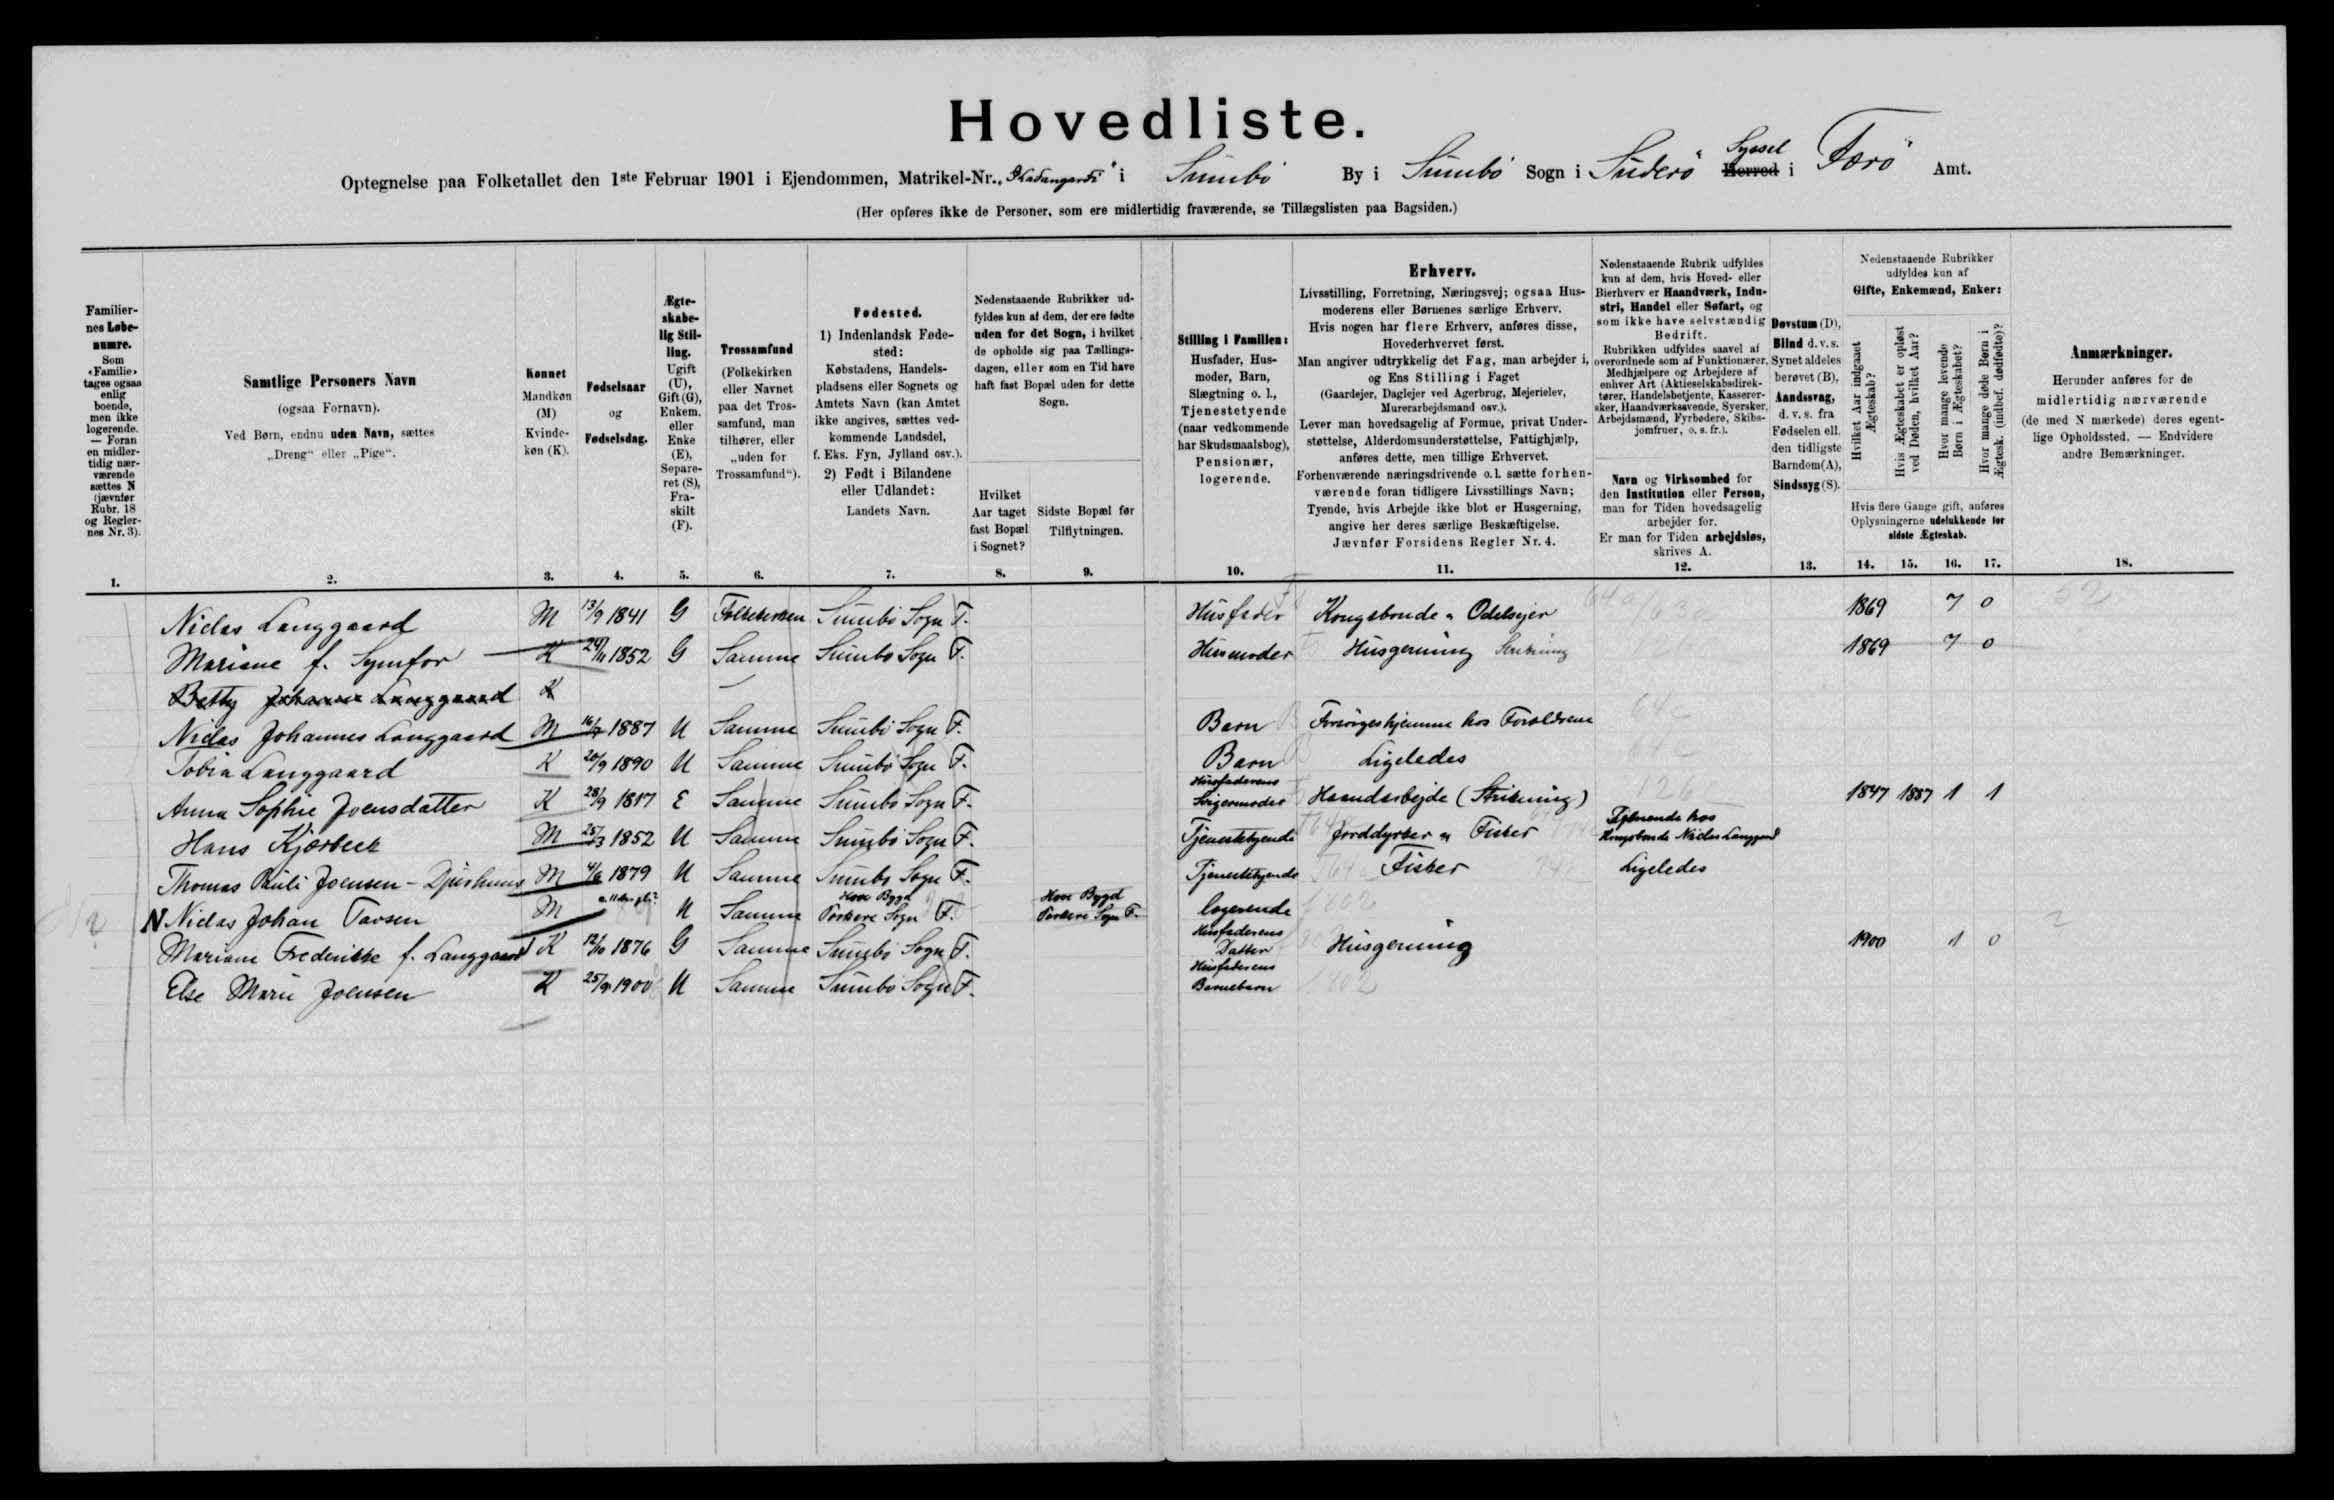 Hovedliste.
Optegnelse paa Folketallet den 1ste Februar 1901 i Ejendommen, Matrikel-Nr. i Sumbø By i Sumbø Sogn i Suderø Syssel Herred i Færø Amt.
(Her opføres ikke de Personer, som ere midlertidig fraværende, se Tillægslisten paa Bagsiden.)
Familiernes Løbenumre.
Som «Familie» tages ogsaa enlig boende, men ikke logerende. — Foran en midlertidig nærværende sættes N (jævnfør Rubr. 18 og Reglernes Nr. 3).
Samtlige Personers Navn
(ogsaa Fornavn).
Ved Børn, endnu uden Navn, sættes
„Dreng“ eller „Pige“.
Kønnet
Mandkøn (M)
Kvindekøn (K).
Fødselsaar
og
Fødselsdag.
Ægteskabelig Stilling.
Ugift (U), Gift (G), Enkem. eller Enke (E), Separeret (S), Fraskilt (F).
Trossamfund
(Folkekirken eller Navnet paa det Trossamfund, man tilhører, eller „uden for Trossamfund“).
Fødested.
1) Indenlandsk Fødested:
Købstadens, Handelspladsens eller Sognets og Amtets Navn (kan Amtet ikke angives, sættes vedkommende Landsdel, f. Eks. Fyn, Jylland osv.).
2) Født i Bilandene eller Udlandet:
Landets Navn.
Nedenstaaende Rubrikker udfyldes kun af dem, der ere fødte uden for det Sogn, i hvilket de opholde sig paa Tællingsdagen, eller som en Tid have haft fast Bopæl uden for dette Sogn.
Hvilket Aar taget fast Bopæl i Sognet?
Sidste Bopæl før Tilflytningen.
Stilling i Familien:
Husfader, Husmoder, Barn, Slægtning o. l., Tjenestetyende (naar vedkommende har Skudsmaalsbog), Pensionær, logerende.
Erhverv.
Livsstilling, Forretning, Næringsvej; ogsaa Husmoderens eller Børnenes særlige Erhverv.
Hvis nogen har flere Erhverv, anføres disse, Hovederhvervet først.
Man angiver udtrykkelig det Fag, man arbejder i, og Ens Stilling i Faget
(Gaardejer, Daglejer ved Agerbrug, Mejerielev, Murerarbejdsmand osv.).
Lever man hovedsagelig af Formue, privat Understøttelse, Alderdomsunderstøttelse, Fattighjælp, anføres dette, men tillige Erhvervet.
Forhenværende næringsdrivende o. l. sætte forhenværende foran tidligere Livsstillings Navn;
Tyende, hvis Arbejde ikke blot er Husgerning, angive her deres særlige Beskæftigelse.
Jævnfør Forsidens Regler Nr. 4.
Nedenstaaende Rubrik udfyldes kun af dem, hvis Hoved- eller Bierhverv er Haandværk, Industri, Handel eller Søfart, og som ikke have selvstændig Bedrift.
Rubrikken udfyldes saavel af overordnede som af Funktionærer, Medhjælpere og Arbejdere af enhver Art (Aktieselskabsdirektører, Handelsbetjente, Kasserersker, Haandværkssvende, Syersker, Arbejdsmænd, Fyrbødere, Skibsjomfruer, o. s. fr.).
Navn og Virksomhed for den Institution eller Person, man for Tiden hovedsagelig arbejder for.
Er man for Tiden arbejdsløs, skrives A.
Døvstum (D), Blind d. v. s. Synet aldeles berøvet (B), Aandssvag, d. v. s. fra Fødselen ell. den tidligste Barndom (A), Sindssyg (S).
Nedenstaaende Rubrikker udfyldes kun af Gifte, Enkemænd, Enker:
Hvilket Aar indgaaet Ægteskab?
Hvis Ægteskabet er opløst ved Døden, hvilket Aar?
Hvor mange levende Børn i Ægteskabet?
Hvor mange døde Børn i Ægtesk. (indbef. dødfødte)?
Hvis flere Gange gift, anføres Oplysningerne udelukkende for sidste Ægteskab.
Anmærkninger.
Herunder anføres for de midlertidig nærværende (de med N mærkede) deres egentlige Opholdssted. — Endvidere andre Bemærkninger.
1. 2. 3. 4. 5. 6. 7. 8. 9. 10. 11. 12. 13. 14. 15. 16. 17. 18.
Niclas Langgaard M 13/9 1841 G Folkekirken Sumbø Sogn F. Husfader Kongsbonde & Odelsejer 1869 7 0 52
Mariane f. Symfor K 24/11 1852 G Samme Sumbø Sogn F. Husmoder Husgerning Strikning 1869 7 0
Betty Johanne Langgaard K
Niclas Johannes Langgaard M 1887 U Samme Sumbø Sogn F. Barn Forsørges hjemme hos Forældrene 64c
Tobia Langgaard K 20/9 1890 U Samme Sumbø Sogn F. Barn Ligeledes 64c
Anna Sophie Joensdatter K 28/9 1817 E Samme Sumbø Sogn F. Husfaderens Haandarbejde (Strikning) 126 1847 1887 1 1
Hans Kjærbeck M 25/3 1852 U Samme Sumbø Sogn F. Tjenestetyende Jorddyrker & Fisker Tjenende hos Kongsbonde Niclas Langgaard
Thomas Pauli Joensen-Djurhuus M 4/6 1879 U Samme Sumbø Sogn F. Tjenestetyende Fisker Ligeledes
N Niclas Johan Tavsen M U Samme Hove Bygd Porkere Sogn F. Hove Bygd Porkere Sogn F. logerende 2
Mariane Frederikke f. Langgaard K 12/10 1876 G Samme Sumbø Sogn F. Husfaderens Datter Husgerning 1900 1 0
Else Marie Joensen K 25/9 1900 U Samme Sumbø Sogn F. Husfaderens Barnebarn